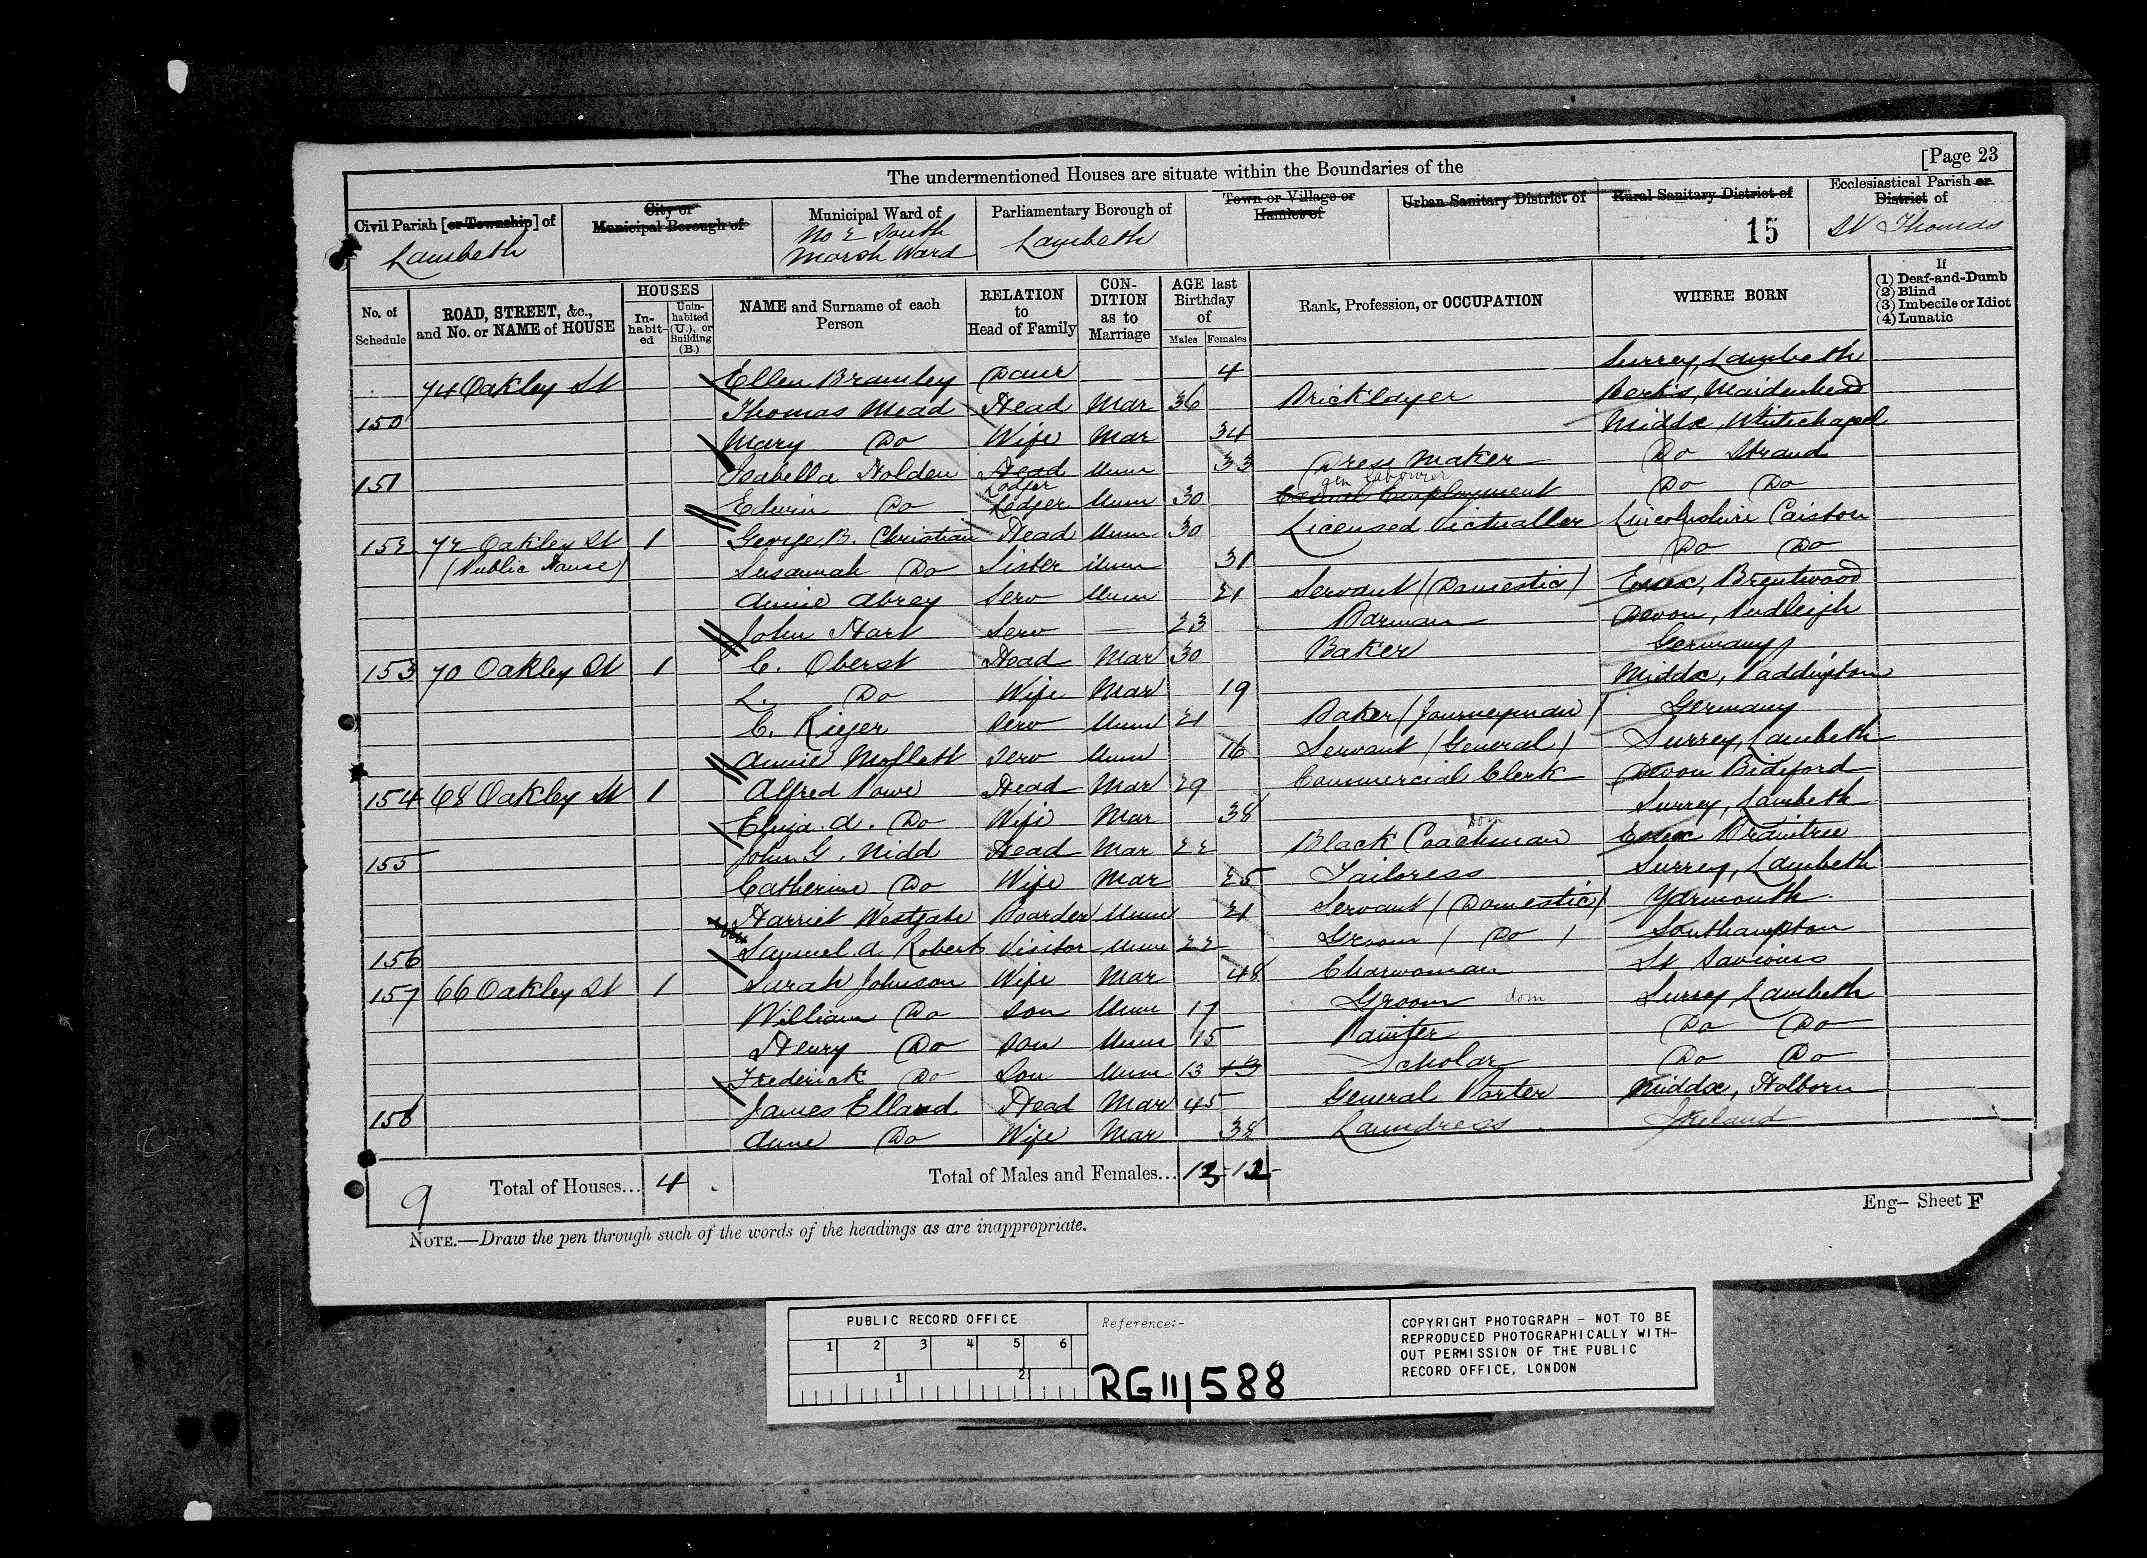 [Page 23
The undermentioned Houses are situate within the Boundaries of the
Civil Parish [or Township] of
Lambeth
City or
Municipal Borough of
Municipal Ward of
No 2 South
Marsh Ward
Parliamentary Borough of
Lambeth
Town or Village or
Hamlet of
Urban Sanitary District of
Rural Sanitary District of
15
Ecclesiastical Parish or
District of
St Thomas
No. of Schedule
ROAD, STREET, &c., and No. or NAME of HOUSE
HOUSES
In-habit-ed
Unin-habited (U.), or Building (B.)
NAME and Surname of each Person
RELATION to Head of Family
CON-DITION as to Marriage
AGE last Birthday of
Males Females
Rank, Profession, or OCCUPATION
WHERE BORN
If
(1) Deaf-and-Dumb
(2) Blind
(3) Imbecile or Idiot
(4) Lunatic
74 Oakley St Ellen Bramley Daur 4 Surrey, Lambeth
150 Thomas Mead Head Mar 36 Bricklayer Berks, Maidenhead
Mary Do Wife Mar 34 Middx, Whitechapel
151 Isabella Holden Head Lodger Unm 33 Dress Maker Do Strand
Edwin Do Lodger Unm 30 Gen Labourer Employment Do Do
152 72 Oakley St 1 George B. Christian Head Unm 30 Licensed Victualler Lincolnshire Caistor
(Public House) Susannah Do Sister Unm 31 Do Do
Annie Abrey Serv Unm 21 Servant (Domestic) Essex, Brentwood
John Hart Serv — 23 Barman Devon, Budleigh
153 70 Oakley St 1 C. Oberst Head Mar 30 Baker Germany
L. Do Wife Mar 19 Middx, Paddington
C. Rieger Serv Unm 21 Baker (Journeyman) Germany
Annie Moflett Serv Unm 16 Servant (General) Surrey, Lambeth
154 68 Oakley St 1 Alfred Powe Head Mar 29 Commercial Clerk Devon Bideford
Eliza. A. Do Wife Mar 38 Surrey, Lambeth
155 John G. Nidd Head Mar 22 Black Coachman Dom Essex Braintree
Catherine Do Wife Mar 25 Tailoress Surrey, Lambeth
Harriet Westgate Boarder Unm 21 Servant (Domestic) Yarmouth
156 Samuel A Roberts Visitor Unm 22 Groom ( Do ) Southampton
157 66 Oakley St 1 Sarah Johnson Wife Mar 48 Charwoman St Saviours
William Do Son Unm 17 Groom dom Surrey, Lambeth
Henry Do Son Unm 15 Painter Do Do
Frederick Do Son Unm 13 13 Scholar Do Do
158 James Elland Head Mar 45 General Porter Middx, Holborn
Anne Do Wife Mar 38 Laundress Ireland
9 Total of Houses... 4 Total of Males and Females... 13 12
Eng– Sheet F
NOTE.—Draw the pen through such of the words of the headings as are inappropriate.
PUBLIC RECORD OFFICE
1 2 3 4 5 6
1 2
Reference:-
RG 11/588
COPYRIGHT PHOTOGRAPH – NOT TO BE
REPRODUCED PHOTOGRAPHICALLY WITH-
OUT PERMISSION OF THE PUBLIC
RECORD OFFICE, LONDON